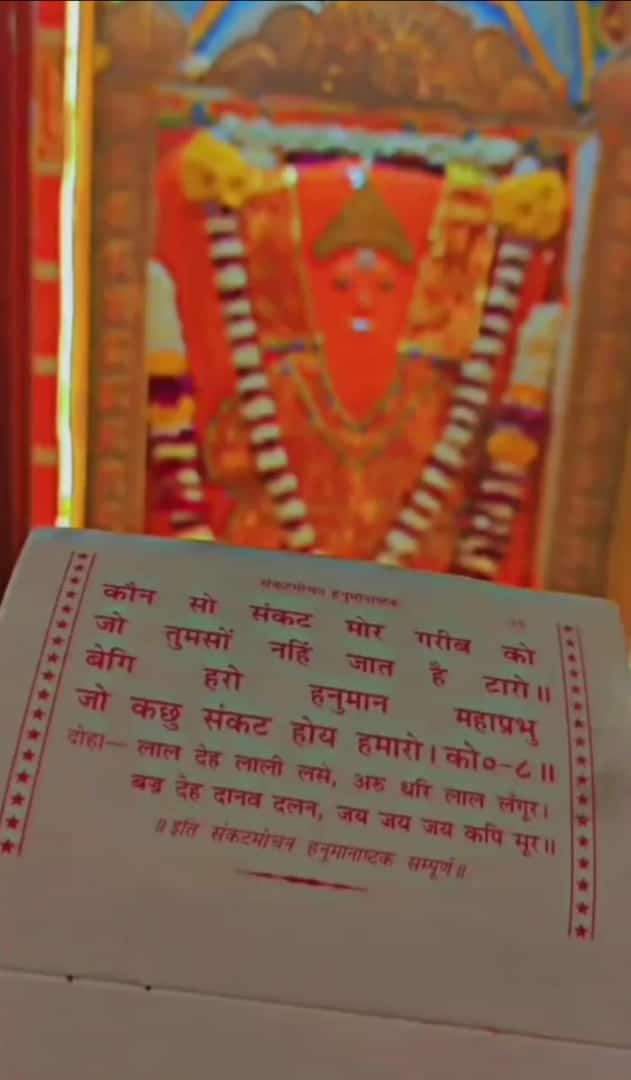 संकटमोचन हनुमानाष्टक
कौन सो संकट मोर गरीब को
जो तुमसों नहिं जात है टारो॥
बेगि हरो हनुमान महाप्रभु
जो कछु संकट होय हमारो। को०-८॥
दोहा— लाल देह लाली लसे, अरु धरि लाल लंगूर।
बज्र देह दानव दलन, जय जय जय कपि सूर॥
॥ इति संकटमोचन हनुमानाष्टक सम्पूर्ण॥